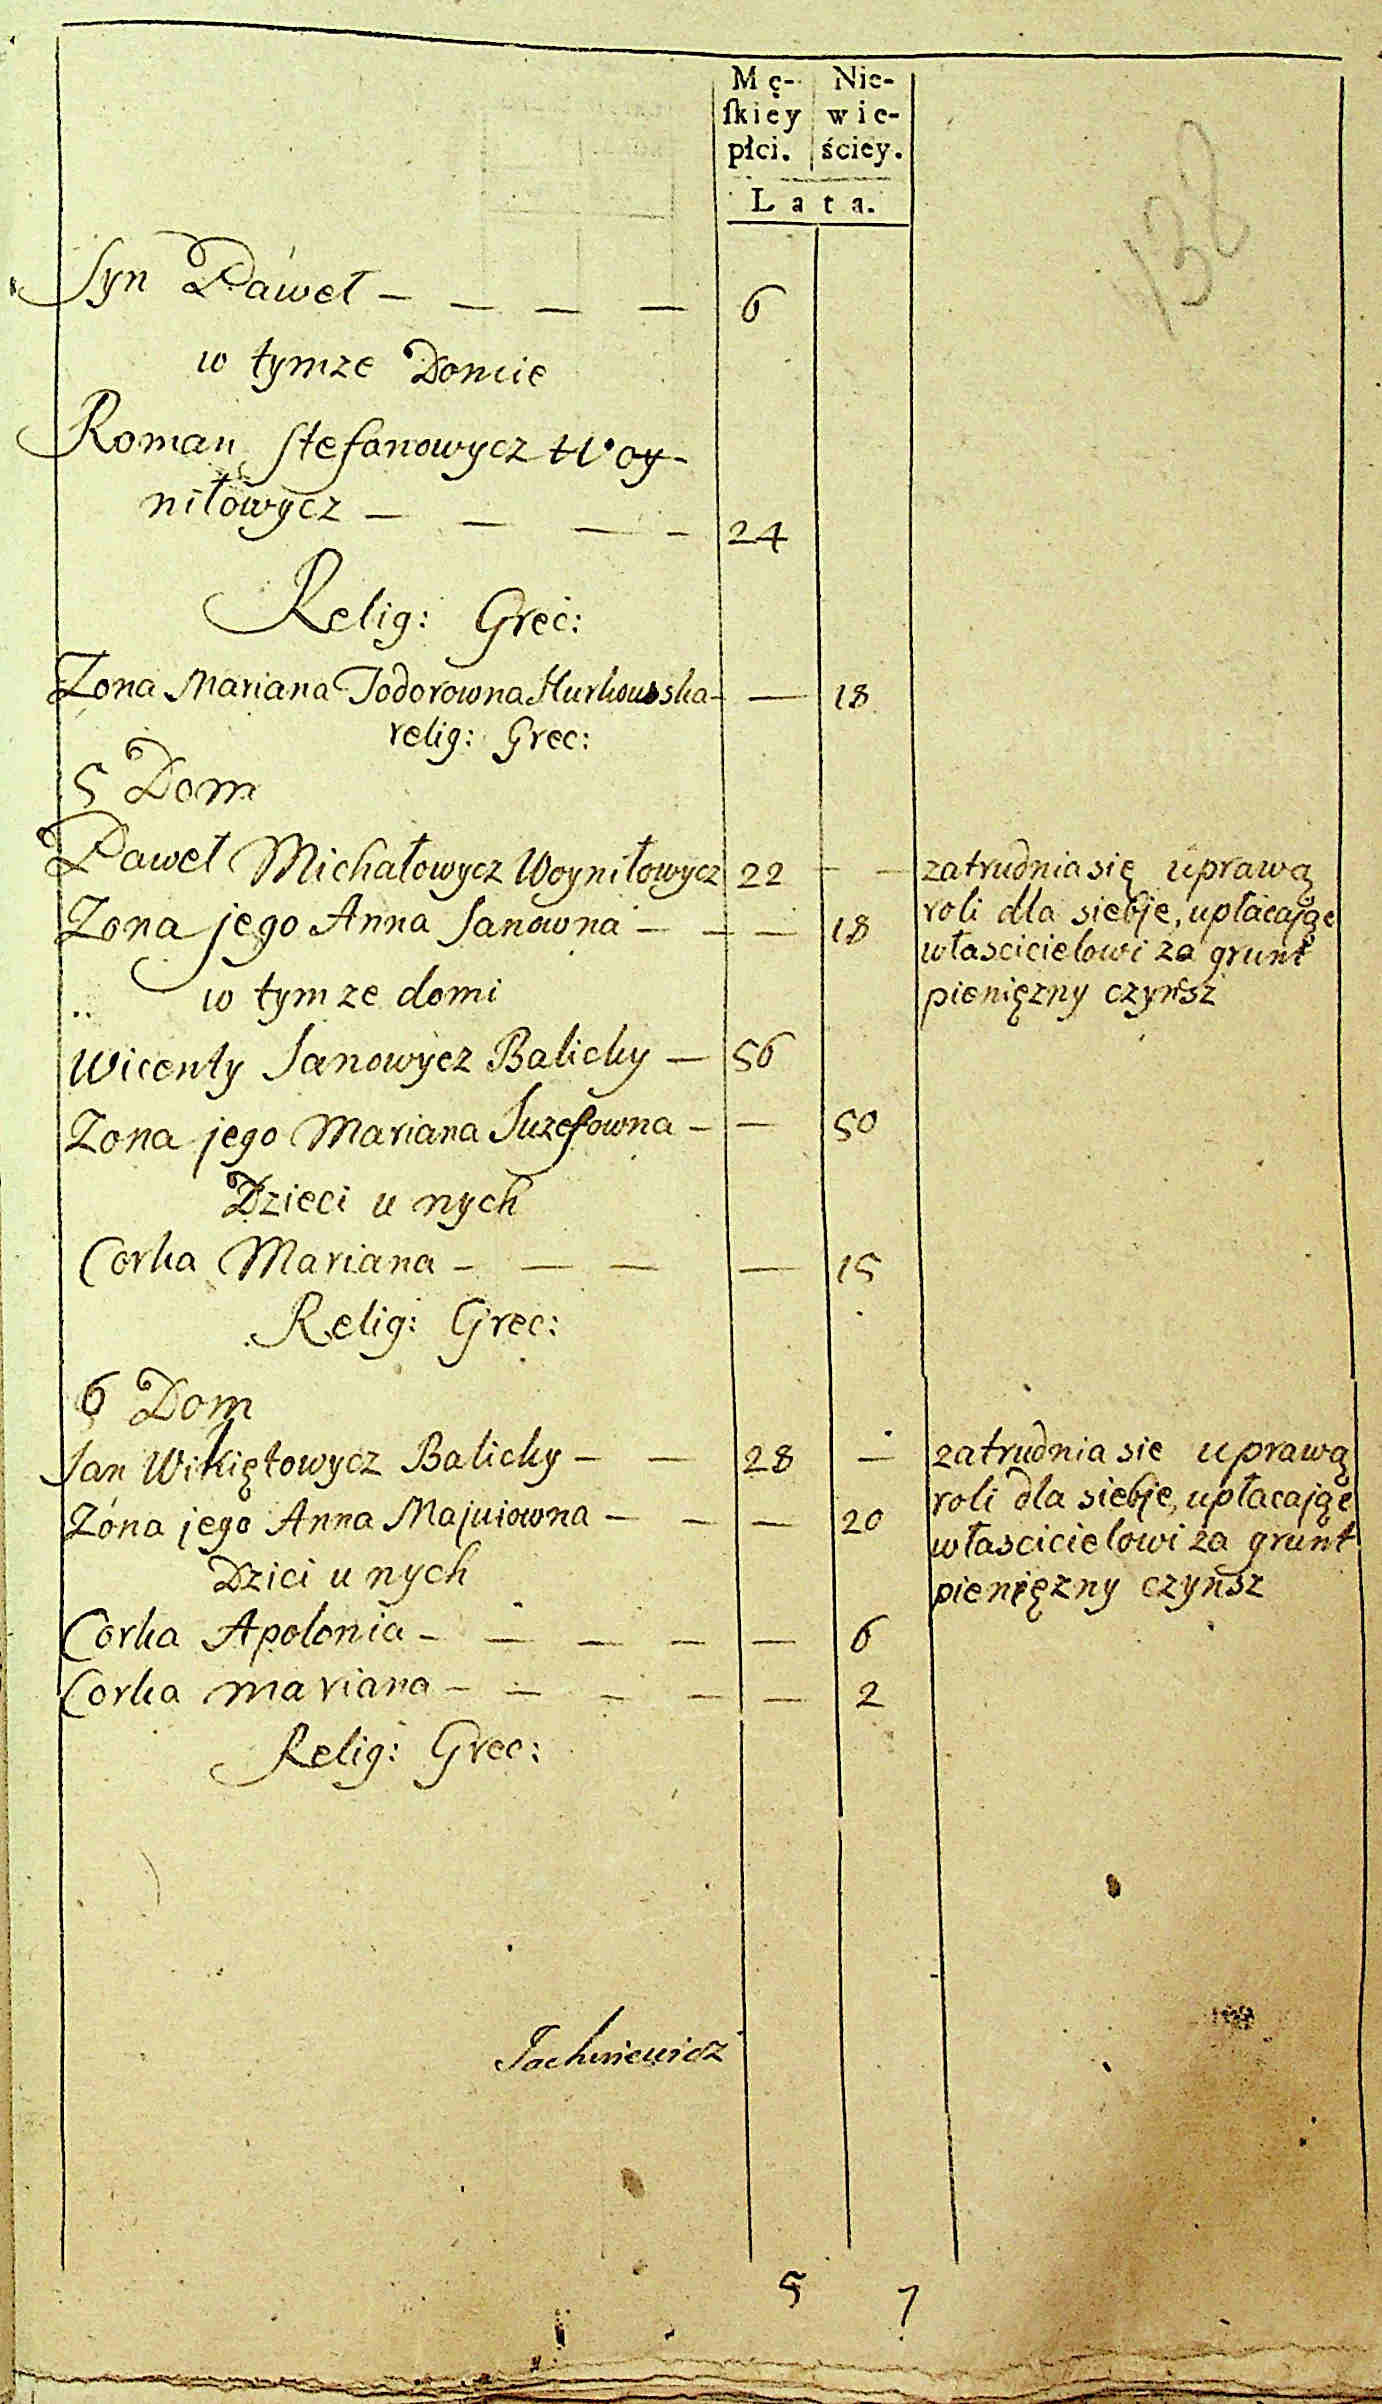 Mę- Nie-
ſkiey wie-
płci. ściey.
Lata.
138
Syn Paweł — — — — 6
w tymze Domie
Roman Stefanowycz Woy-
niłowycz — — — — 24
Relig: Grec:
Zona Mariana Todorowna Hurkowska — — 18
relig: Grec:
5 Dom
Paweł Michałowycz Woyniłowycz 22 — — zatrudnia się uprawą
roli dla siebje, upłacając
Zona jego Anna Janowna — — — 18
włascicielowi za grunt
w tym ze domi
pienięzny czynsz
Wicenty Janowycz Balicky — 56
Zona jego Mariana Juzefowna — — 50
Dzieci u nych
Corka Mariana — — — — 15
Relig: Grec:
6 Dom
Jan Balicky — — 28 — zatrudnia sie uprawą
roli dla siebje, upłacając
Zona jego Anna — — — 20
włascicielowi za grunt
Dzici u nych
pienięzny czynsz
Corka Apolonia — — — — — 6
Corka mariana — — — — — 2
Relig: Grec:
5 7